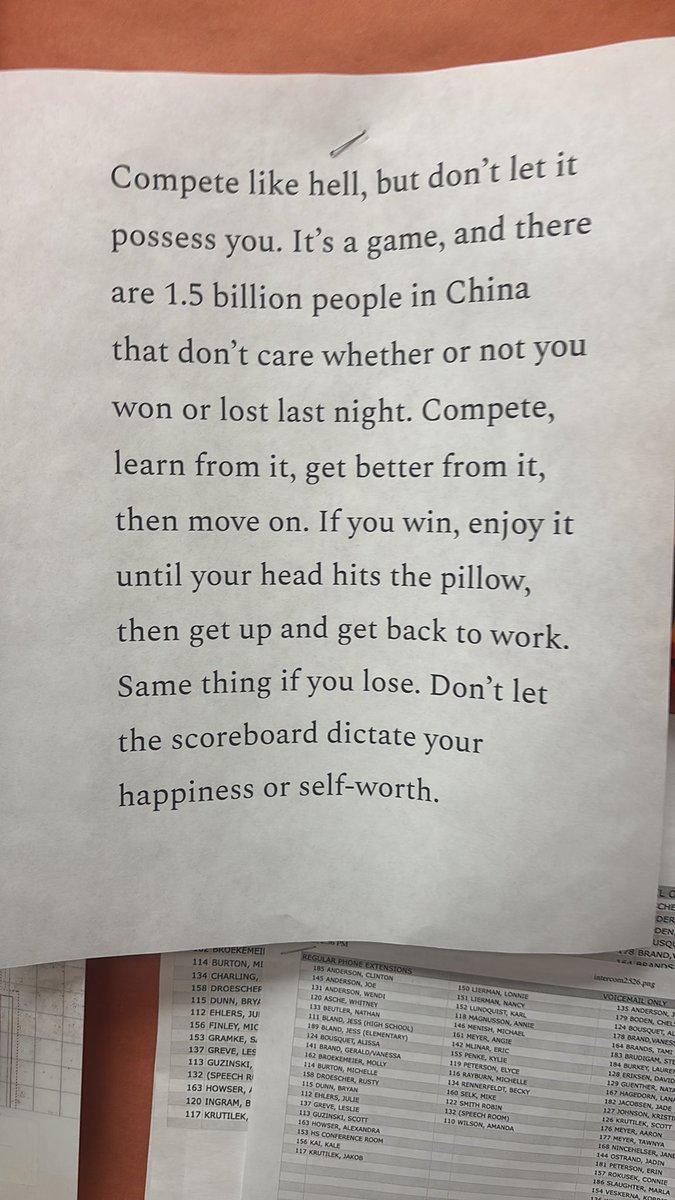 Compete like hell, but don't let it
possess you. It's a game, and there
are 1.5 billion people in China
that don't care whether or not you
won or lost last night. Compete,
learn from it, get better from it,
then move on. If you win, enjoy it
until your head hits the pillow,
then get up and get back to work.
Same thing if you lose. Don't let
the scoreboard dictate your
happiness or self-worth.
114 BURTON, MI
134 CHARLING,
158 DROESCHER
115 DUNN, BRYA
112 EHLERS, JUI
156 FINLEY, MIC
153 GRAMKE, S
137 GREVE, LES
113 GUZINSKI,
132 (SPEECH R
163 HOWSER, A
120 INGRAM, B
117 KRUTILEK,
PM
REGULAR PHONE EXTENSIONS
185 ANDERSON, CLINTON
145 ANDERSON, JOE
131 ANDERSON, WENDI
120 ASCHE, WHITNEY
133 BEUTLER, NATHAN
111 BLAND, JESS (HIGH SCHOOL)
189 BLAND, JESS (ELEMENTARY)
124 BOUSQUET, ALISSA
141 BRAND, GERALD/VANESSA
162 BROEKEMEIER, MOLLY
114 BURTON, MICHELLE
158 DROESCHER, RUSTY
115 DUNN, BRYAN
112 EHLERS, JULIE
137 GREVE, LESLIE
113 GUZINSKI, SCOTT
163 HOWSER, ALEXANDRA
153 HS CONFERENCE ROOM
156 KAI, KALE
117 KRUTILEK, JAKOB
150 LIERMAN, LONNIE
151 LIERMAN, NANCY
152 LUNDQUIST, KARL
118 MAGNUSSON, ANNIE
146 MENISH, MICHAEL
161 MEYER, ANGIE
142 MLINAR, ERIC
155 PENKE, KYLIE
119 PETERSON, ELYCE
116 RAYBURN, MICHELLE
134 RENNERFELDT, BECKY
160 SELK, MIKE
122 SMITH ROBIN
132 (SPEECH ROOM)
110 WILSON, AMANDA
intercom2526.png
VOICEMAIL ONLY
135 ANDERSON, J
179 BODEN, CHELS
124 BOUSQUET, AL
178 BRAND, VANESS
164 BRANDS, TAMI
183 BRUDIGAM, STE
184 BURKEY, LAURE
128 ERIKSEN, DAVID
129 GUENTHER, NATA
167 HAGEDORN, LANA
182 JACOBSEN, JADE
127 JOHNSON, KRISTI
126 KRUTILEK, SCOTT
176 MEYER, AARON
177 MEYER, TAWNYA
168 NINCEHELSER, JANE
144 OSTRAND, JADIN
181 PETERSON, ERIN
157 ROKUSEK, CONNIE
186 SLAUGHTER, MARLA
154 VESKERNA,